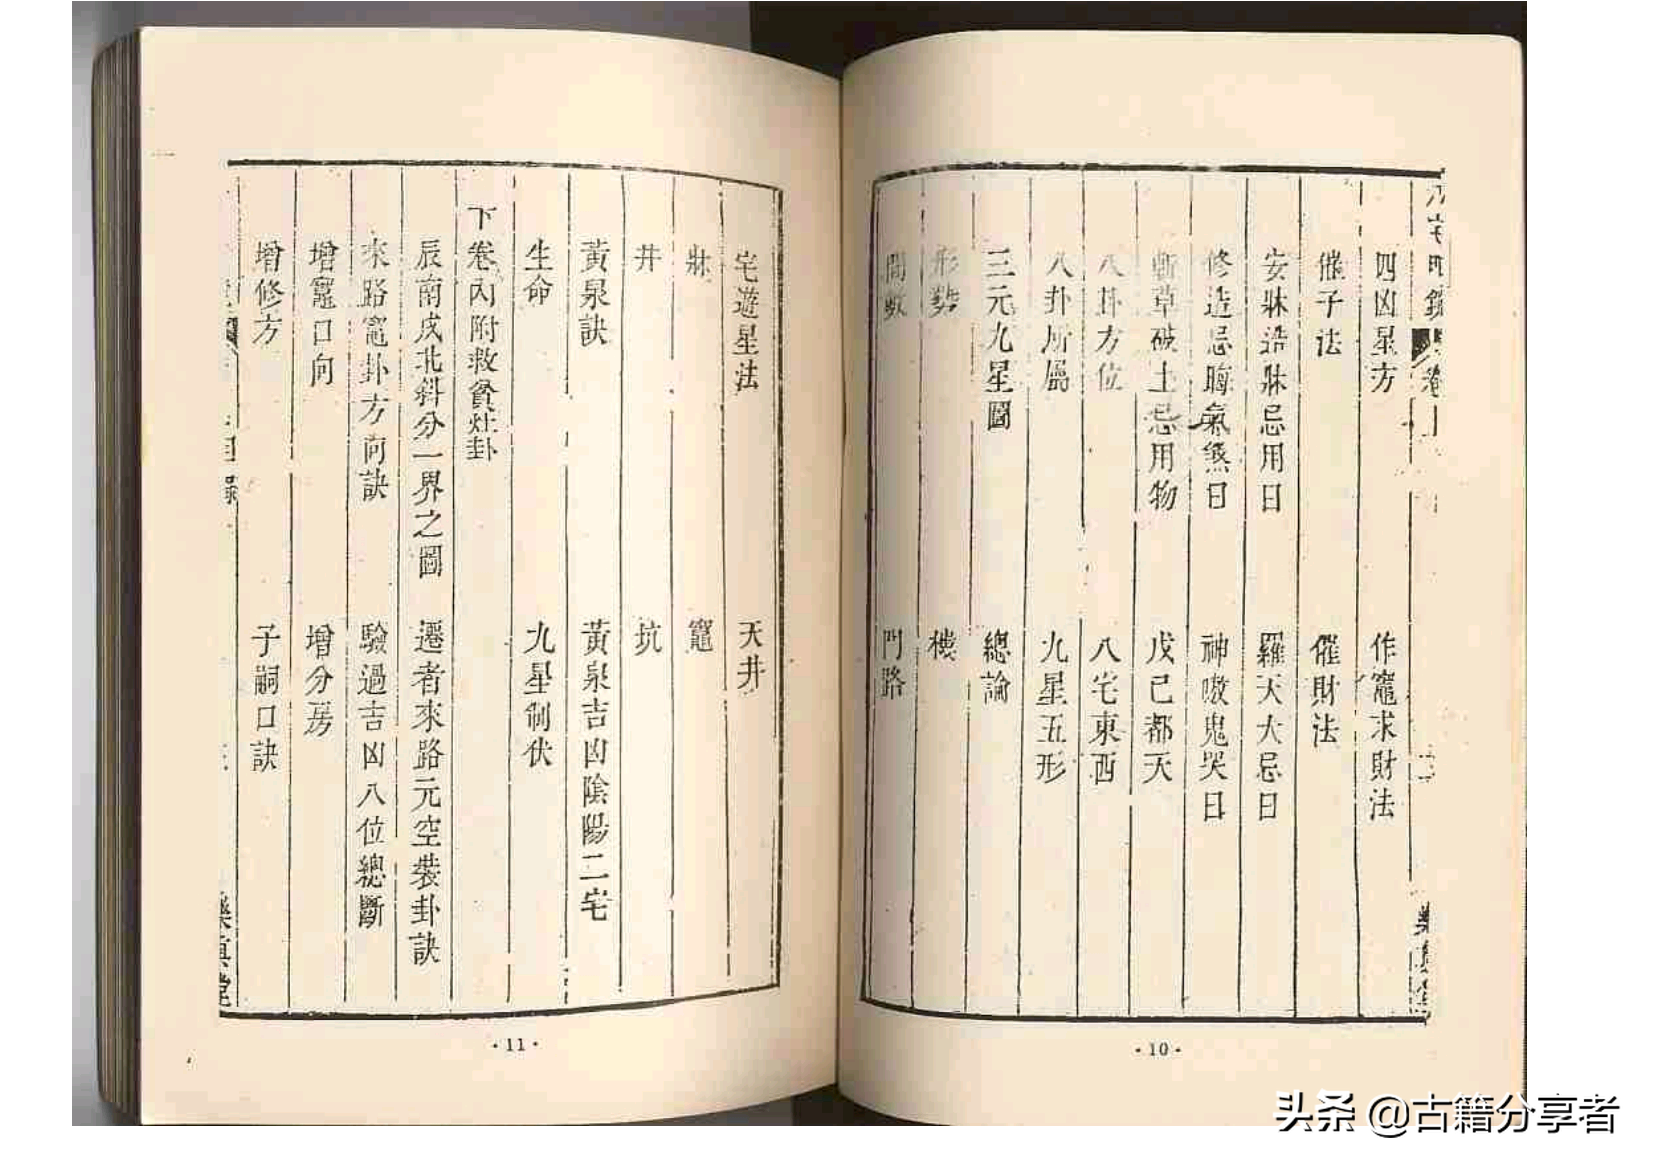 八宅明鏡 卷上
四凶星方 作竈求財法
催子法 催財法
安牀造牀忌用日 羅天大忌日
修造忌臨氣煞日 神嗷鬼哭日
斬草破土忌用物 戊己都天
八卦方位 八宅東西
八卦所屬 九星五形
三元九星圖 總論
形勢
間數 門路
樂真堂
·10·
宅遊星法 天井
牀 竈
井 坑
黃泉訣 黃泉吉凶陰陽二宅
生命 九星制伏
下卷內附救貧灶卦
辰南戌北斜分一界之圖 遷者來路元空裝卦訣
來路竈卦方向訣 驗過吉凶八位總斷
增竈口向 增分房
增修方 子嗣口訣
目錄
樂真堂
·11·
头条 @古籍分享者